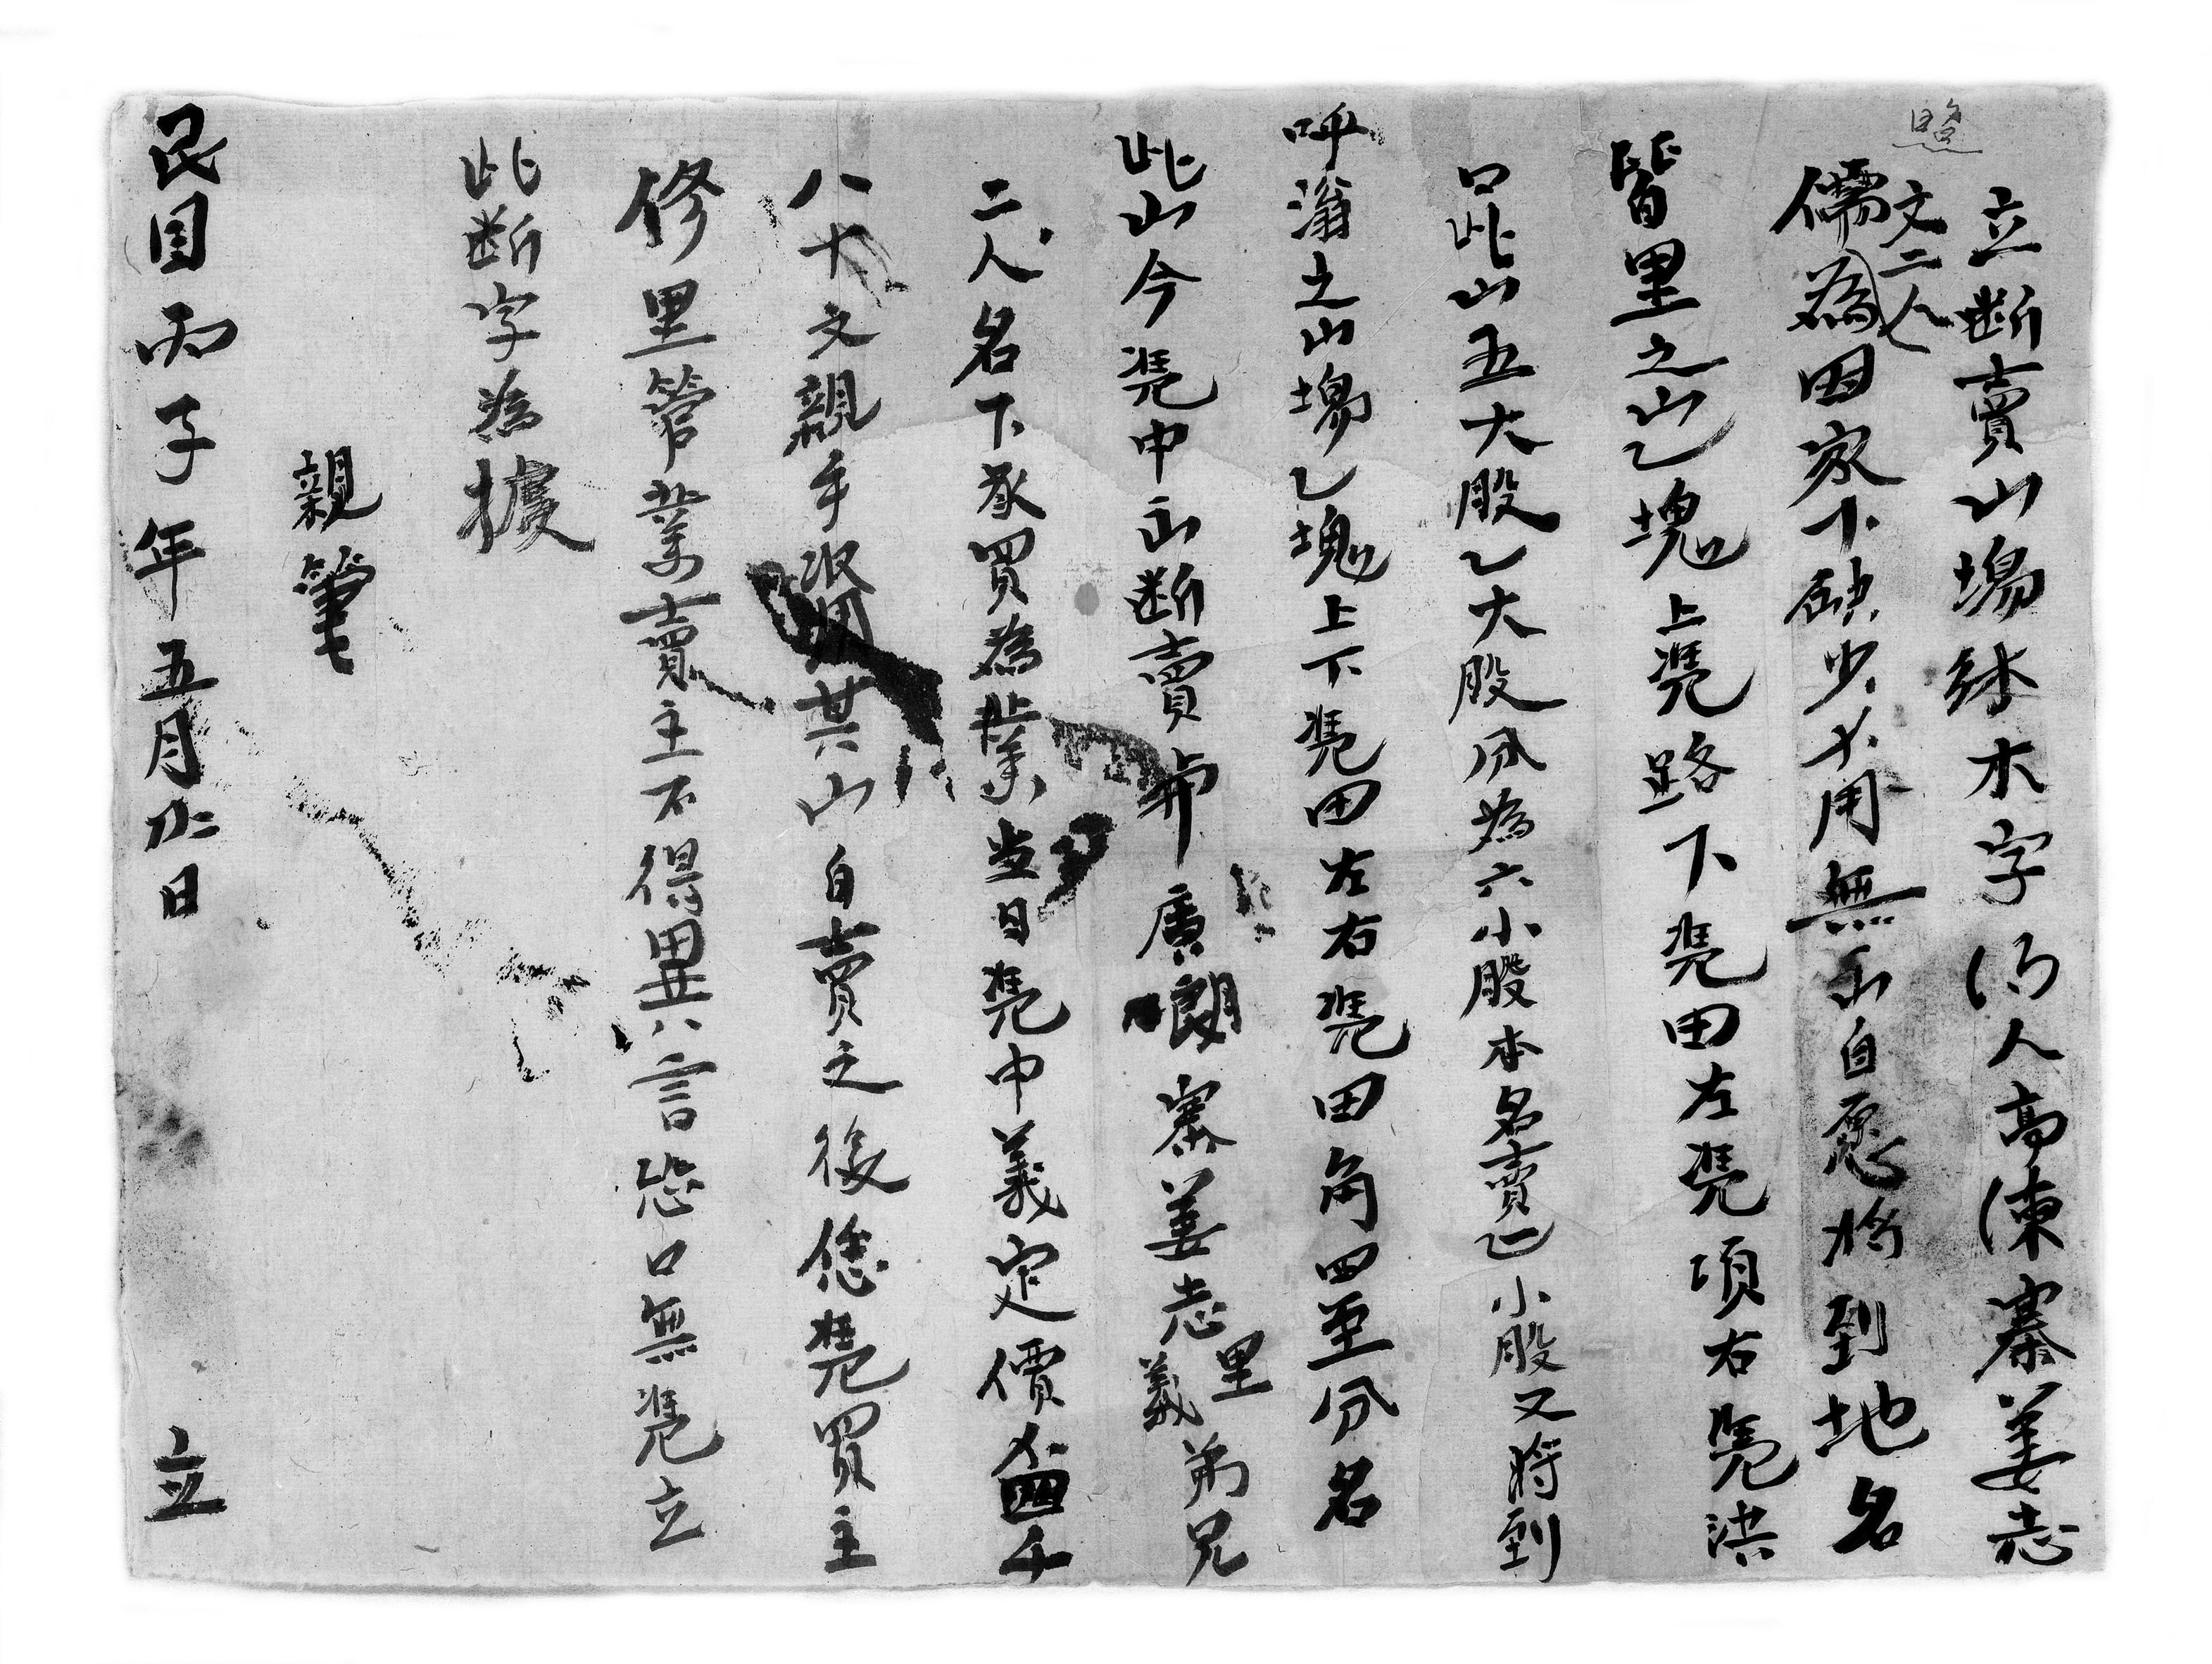 照
立断賣山塲䋛木字約人高凍寨姜志
文二人
儒為因家下缺少又用無出自愿將到地名
皆里之山乙塊上凴路下凴田左凴項右凴洪
口此山五大股乙大股分為六小股本名賣乙小股又將到
呼滃之山塲乙塊上下凴田左右凴田角四至分名
此山今凴中出断賣與廣朗寨姜志里義弟兄
二人名下承買為業當日凴中義定價四千
八十文親手收囬其山自賣之後恁凴買主
修里管業賣主不得異言恐口無凴立
此断字為據
親筆
民囯丙子年五月廿二日 立